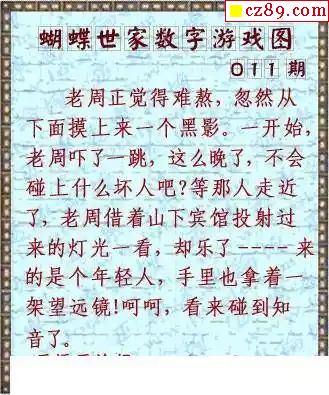 cz89.com
蝴蝶世家数字游戏图
011期
老周正觉得难熬，忽然从
下面摸上来一个黑影。一开始，
老周吓了一跳，这么晚了，不会
碰上什么坏人吧?等那人走近
了，老周借着山下宾馆投射过
来的灯光一看，却乐了----来
的是个年轻人，手里也拿着一
架望远镜!呵呵，看来碰到知
音了。